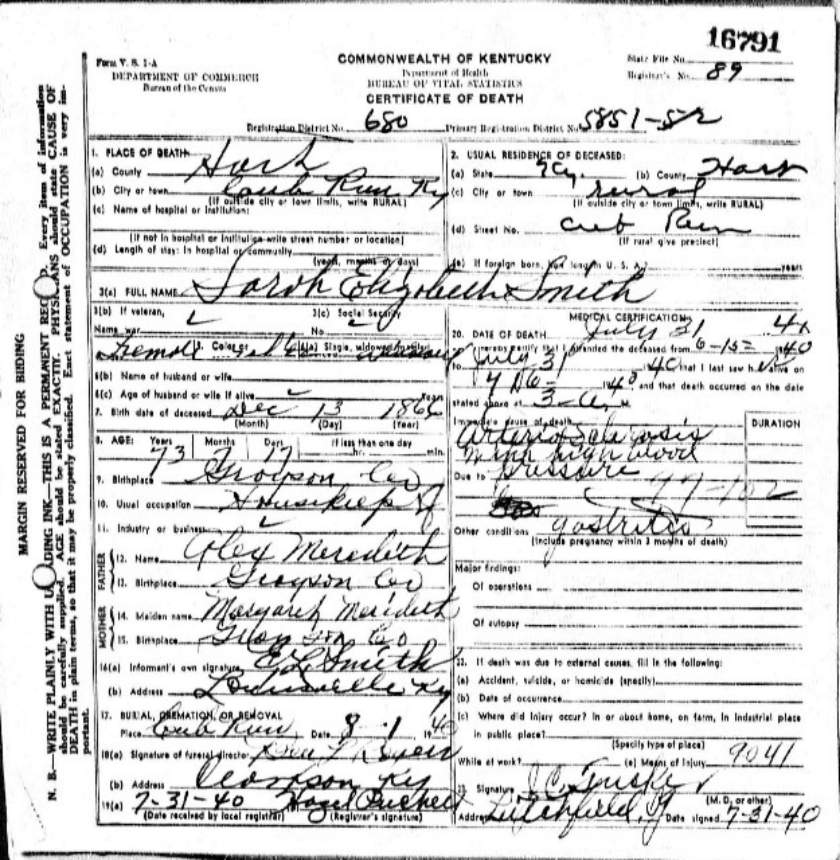 16791
Form V. S. 1-A
DEPARTMENT OF COMMERCE
Bureau of the Census
COMMONWEALTH OF KENTUCKY
Department of Health
BUREAU OF VITAL STATISTICS
CERTIFICATE OF DEATH
State File No.
Registrar's No. 89
Registration District No. 680 Primary Registration District No. 5851-52
MARGIN RESERVED FOR BINDING
N. B.—WRITE PLAINLY WITH UNFADING INK—THIS IS A PERMANENT RECORD. Every item of information
should be carefully supplied. AGE should be stated EXACTLY. PHYSICIANS should state CAUSE OF
DEATH in plain terms, so that it may be properly classified. Exact statement of OCCUPATION is very im-
portant.
1. PLACE OF DEATH
(a) County Hart
(b) City or town Cub Run Ky
(If outside city or town limits, write RURAL)
(c) Name of hospital or Institution:
(If not in hospital or institution write street number or location)
(d) Length of stay: In hospital or community
(years, months or days)
2. USUAL RESIDENCE OF DECEASED:
(a) State Ky. (b) County Hart
(c) City or town rural
(If outside city or town limits, write RURAL)
(d) Street No. Cub Run
(If rural give precinct)
(e) If foreign born, how long in U. S. A.? years
3(a) FULL NAME Sarah Elizabeth Smith
3(b) If veteran, 3(c) Social Security
Name war No.
Female 5. Color or 6(a) Single, widowed, married
6(b) Name of husband or wife
6(c) Age of husband or wife if alive Years
7. Birth date of deceased Dec 13 1866
(Month) (Day) (Year)
8. AGE: Years Months Days If less than one day
73 7 17 hr. min.
9. Birthplace Grayson Co
10. Usual occupation Housekeep
11. Industry or business
FATHER
12. Name Alex Meredith
13. Birthplace Grayson Co
MOTHER
14. Maiden name Margaret Meredith
15. Birthplace Grayson Co
16(a) Informant's own signature E L Smith
(b) Address Louisville Ky
17. BURIAL, CREMATION, OR REMOVAL
Place Cub Run Date 8-1 1940
18(a) Signature of funeral director
(b) Address Clarkson Ky
19(a) 7-31-40 Hazel Puckett
(Date received by local registrar) (Registrar's signature)
MEDICAL CERTIFICATION
20. DATE OF DEATH July 31 40
I hereby certify that I attended the deceased from 6-15- 1940
to July 31 40 that I last saw h alive on
1940, and that death occurred on the date
stated above at 3-
Immediate cause of death DURATION
Arteriosclerosis
with high blood
Due to pressure
97-102
Other conditions gastritis
(Include pregnancy within 3 months of death)
Major findings:
Of operations
Of autopsy
22. If death was due to external causes, fill in the following:
(a) Accident, suicide, or homicide (specify)
(b) Date of occurrence
(c) Where did injury occur? In or about home, on farm, in industrial place
in public place?
(Specify type of place)
While at work? (e) Means of Injury 9041
23. Signature
(M. D. or other)
Address Leitchfield, Ky Date signed 7-31-40